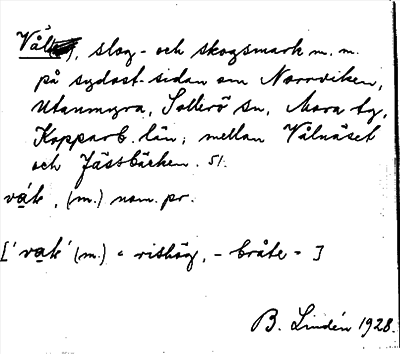 Vål, slog- och skogsmark m. m.
på sydost-sidan om Norrviken,
Utanmyra, Sollerö sn, Mora tg,
Kopparb. län; mellan Vålnäset
och Jässbäcken. Sl.
vak, (m.) nom. pr.
['vak' (m.) = rishög, - bråte - ]
B. Lindén 1928.